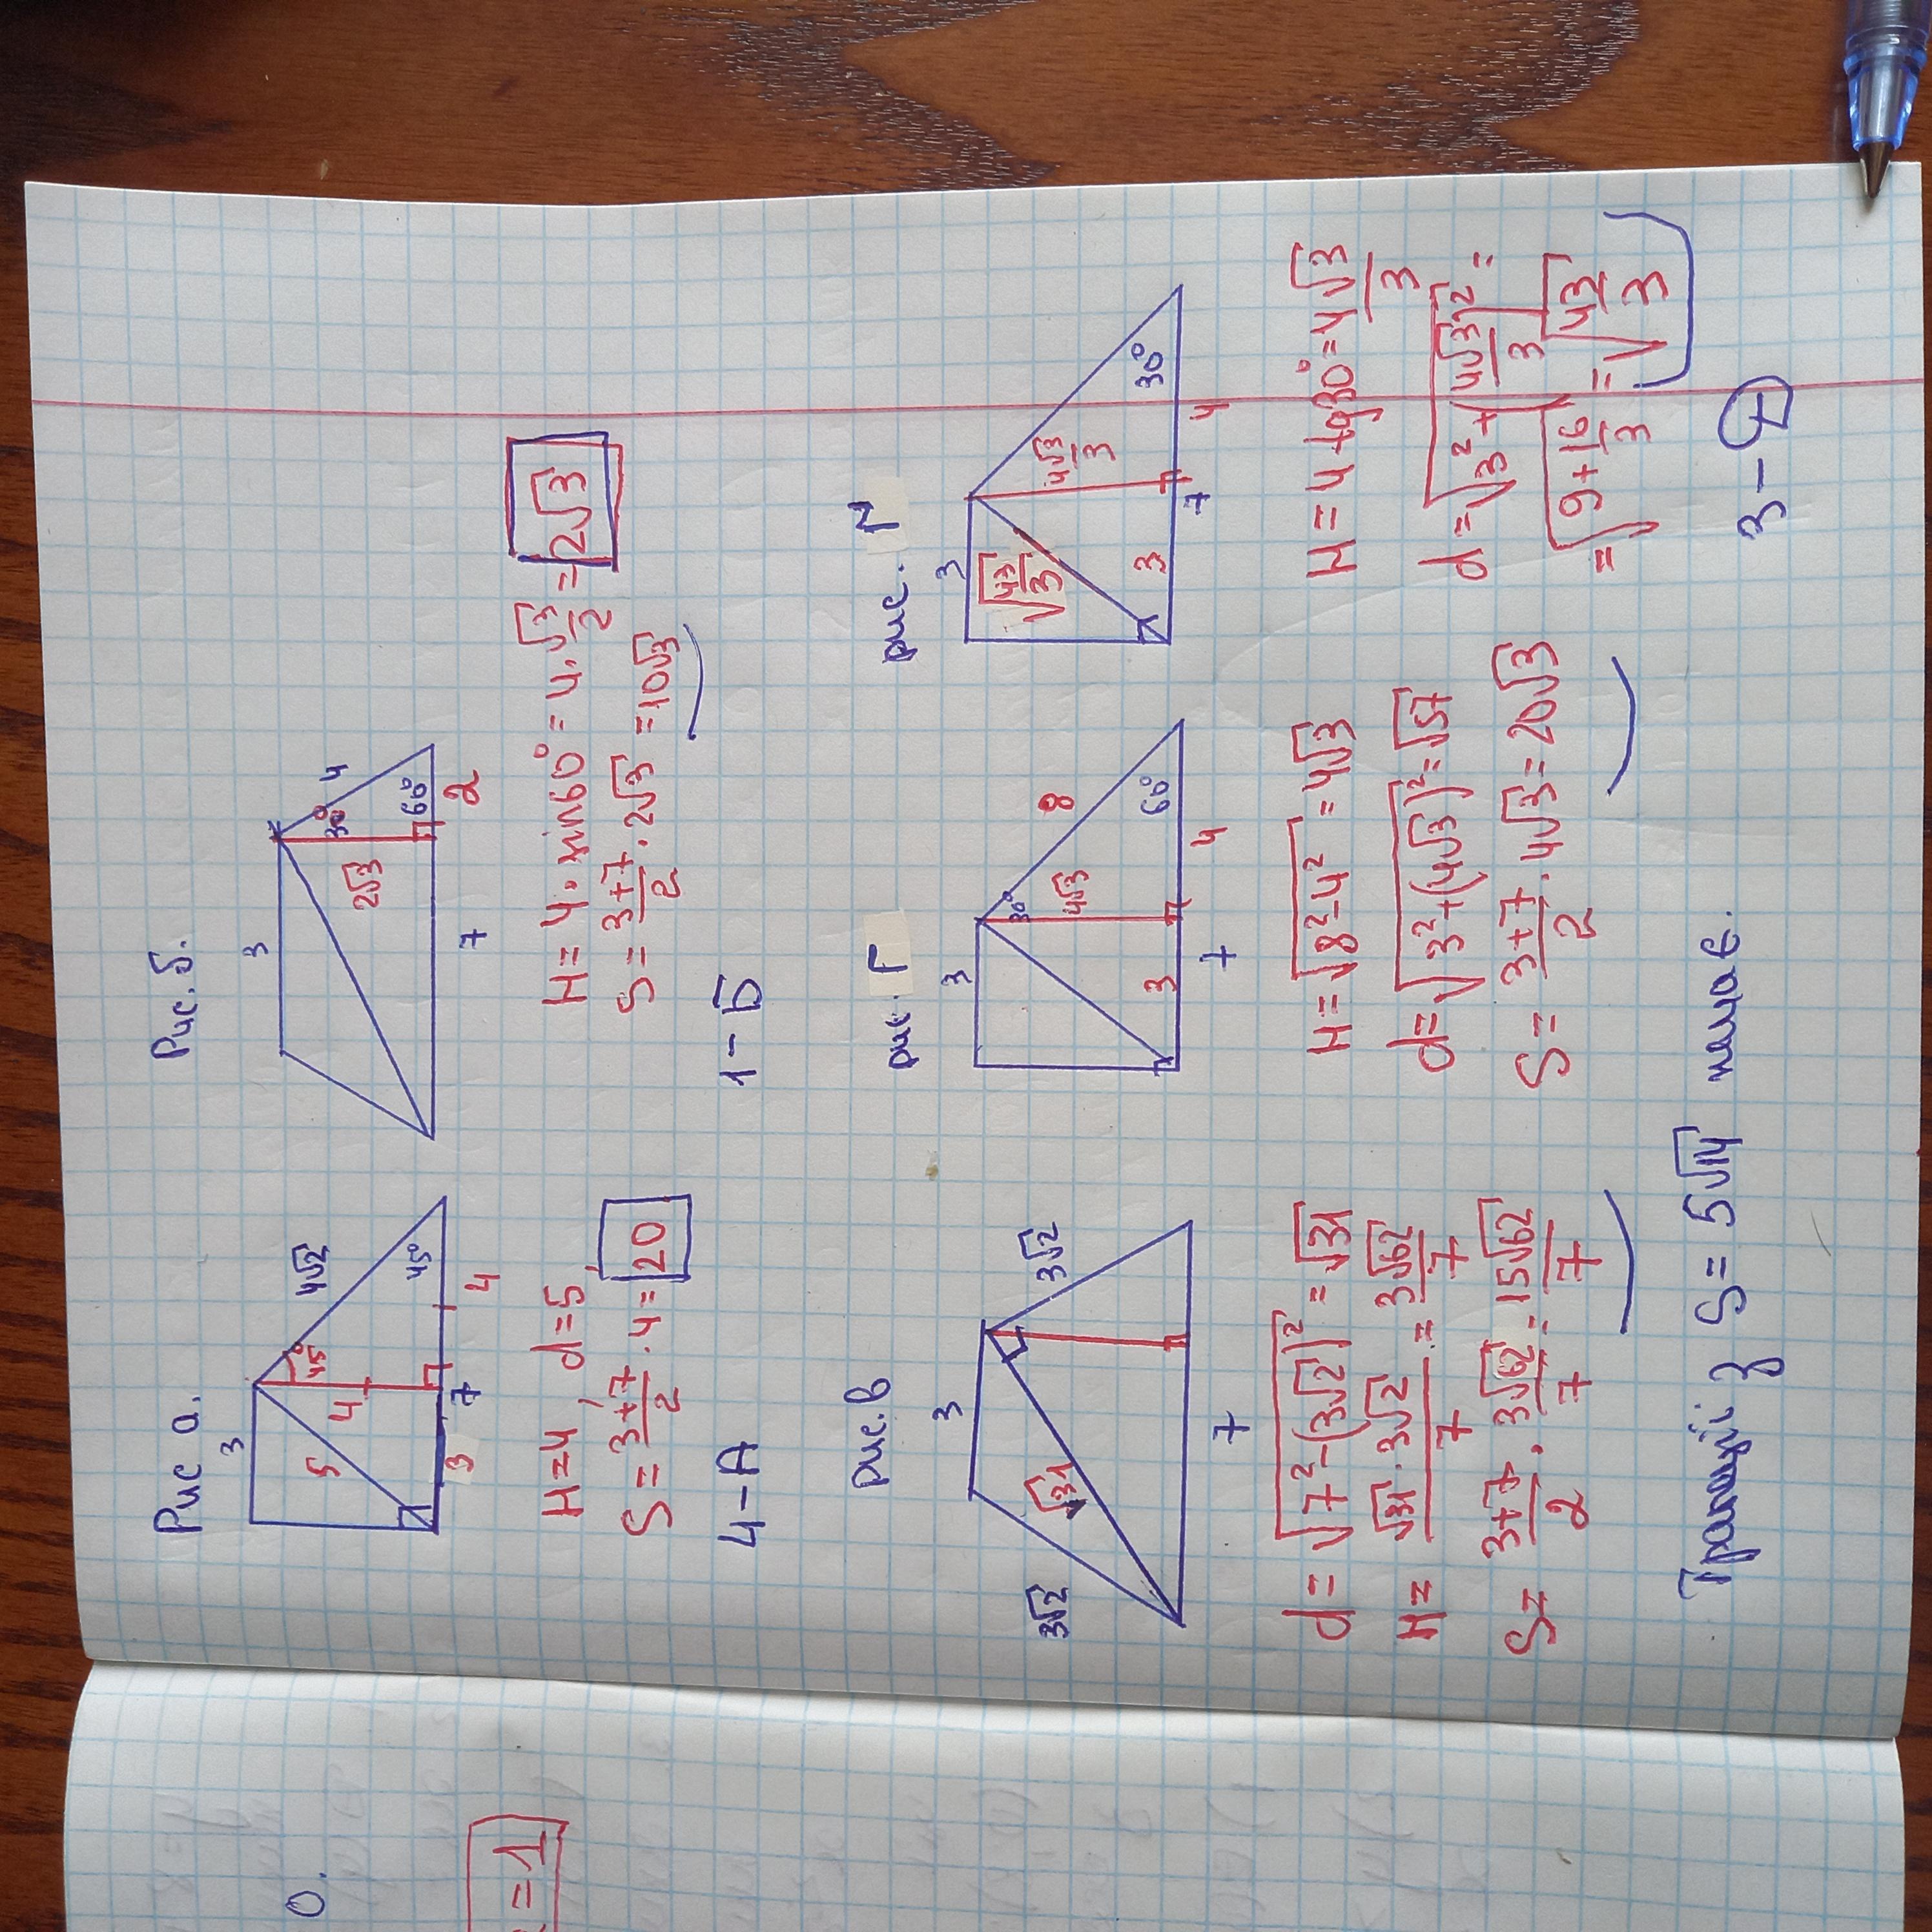 Рис а.
3
4√2
45°
5
4
45°
3
7
4
H=4, d=5,
S = (3+7)/2 · 4 = 20
4-А
Рис. б.
3
4
30°
2√3
60°
7
2
H = 4 · sin60° = 4 · √3/2 = 2√3
S = (3+7)/2 · 2√3 = 10√3
1-Б
рис. в
3
3√2
3√2
√31
7
d = √(7²-(3√2)²) = √31
H = (√31 · 3√2)/7 = 3√62/7
S = (3+7)/2 · 3√62/7 = 15√62/7
рис. Г
3
8
30°
4√3
60°
3
4
7
H = √(8²-4²) = 4√3
d = √(3²+(4√3)²) = √57
S = (3+7)/2 · 4√3 = 20√3
рис.
3
√(43/3)
4√3/3
30°
3
7
4
H = 4 tg30° = 4√3/3
d = √(3²+(4√3/3)²) =
= √(9+16/3) = √(43/3)
Трапеції з S = 5√14 немає.
3-
0.
=1